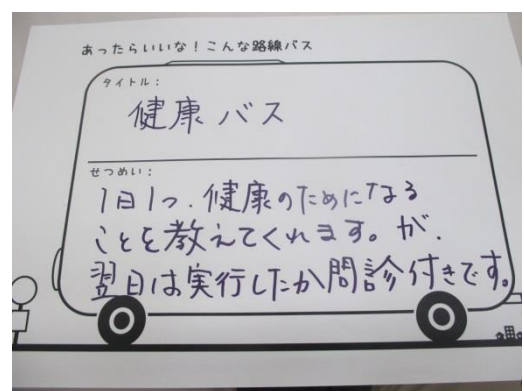 あったらいいな！こんな路線バス
タイトル：
健康バス
せつめい：
1日1つ、健康のためになる
ことを教えてくれます。が、
翌日は実行したか問診付きです。